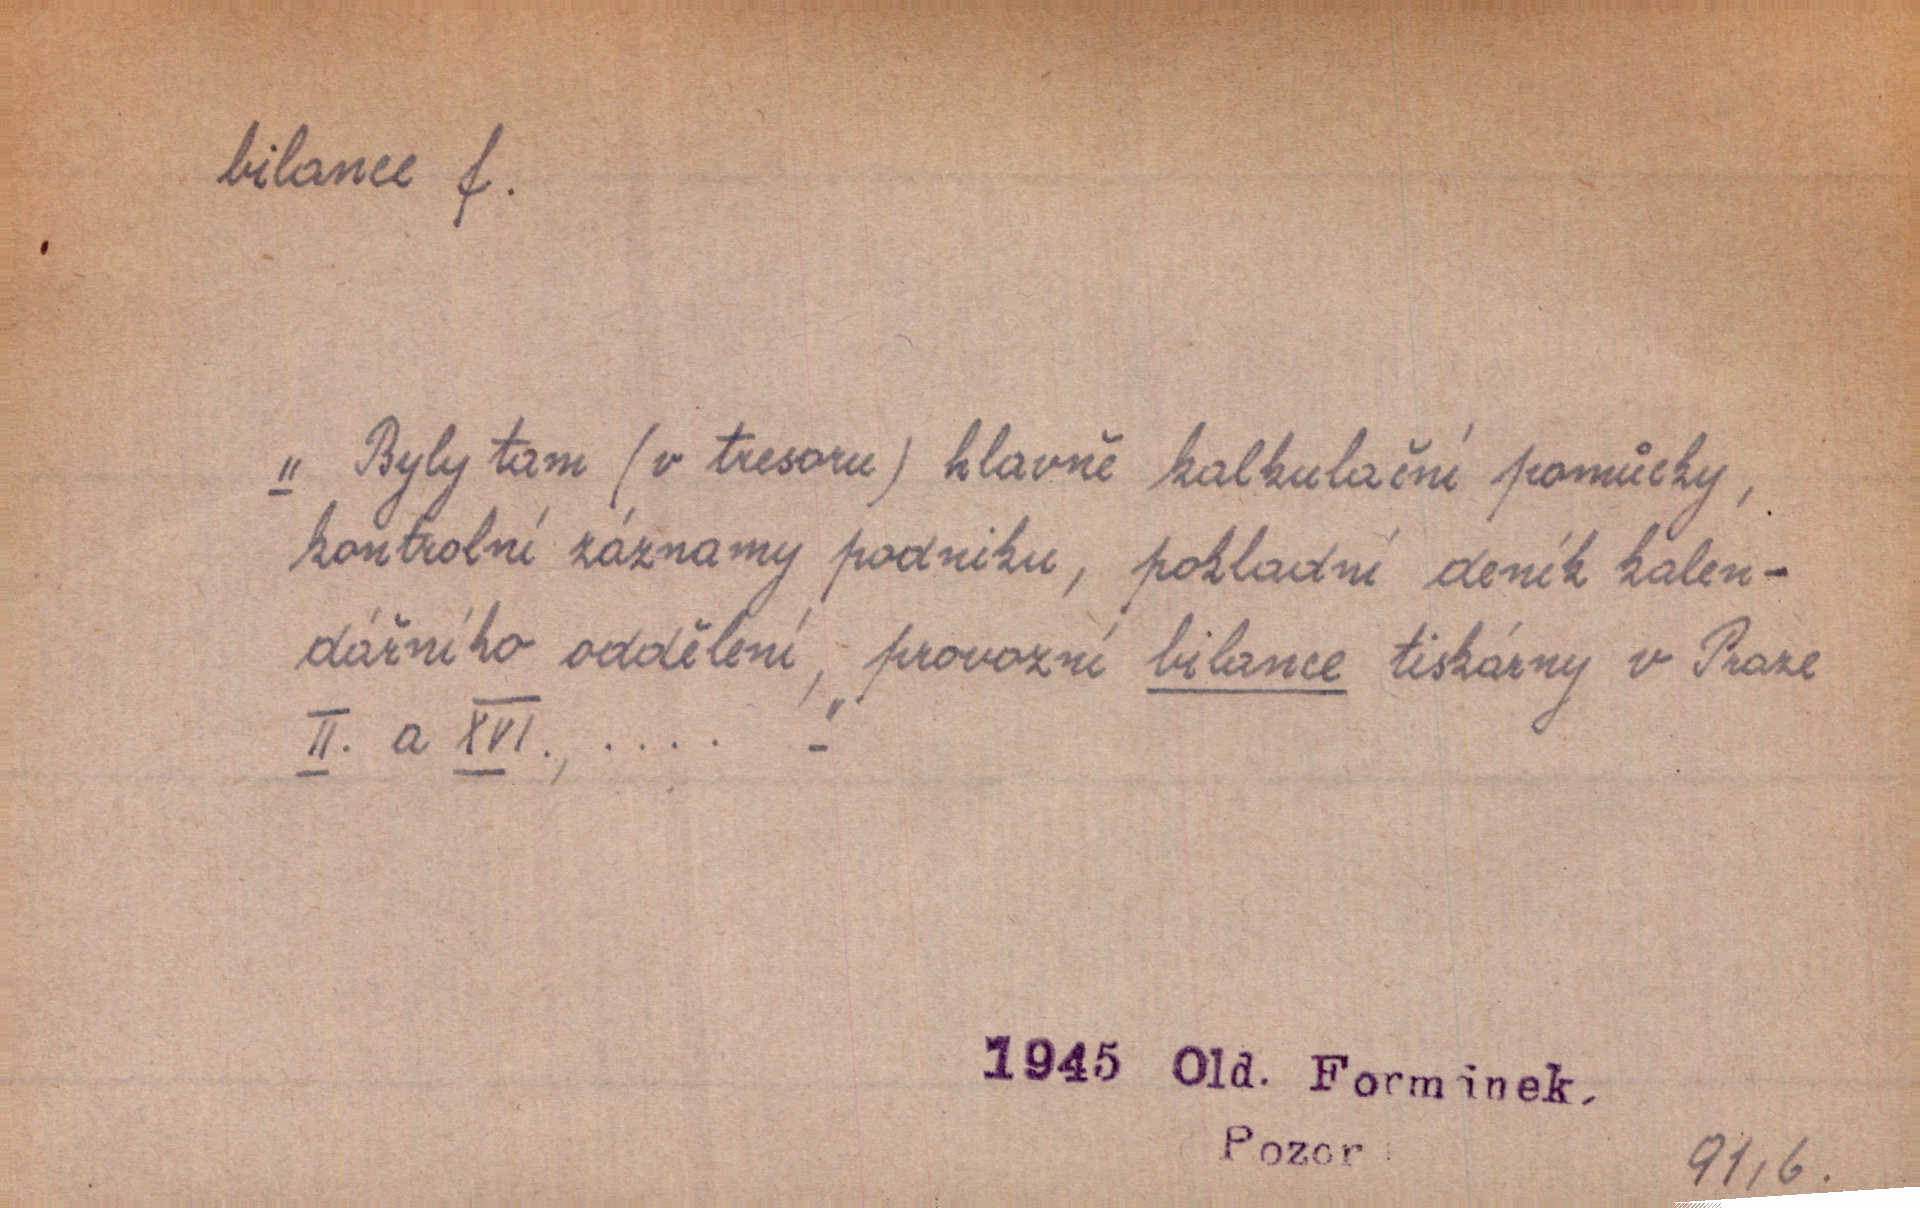 bilance f.
„ Byly tam (v tresoru) hlavně kalkulační pomůcky,
kontrolní záznamy podniku, pokladní deník kalen-
dářního oddělení, provozní bilance tiskárny v Praze
II. a XVI., .... –"
1945 Old. Formínek.
Pozor
91,6.